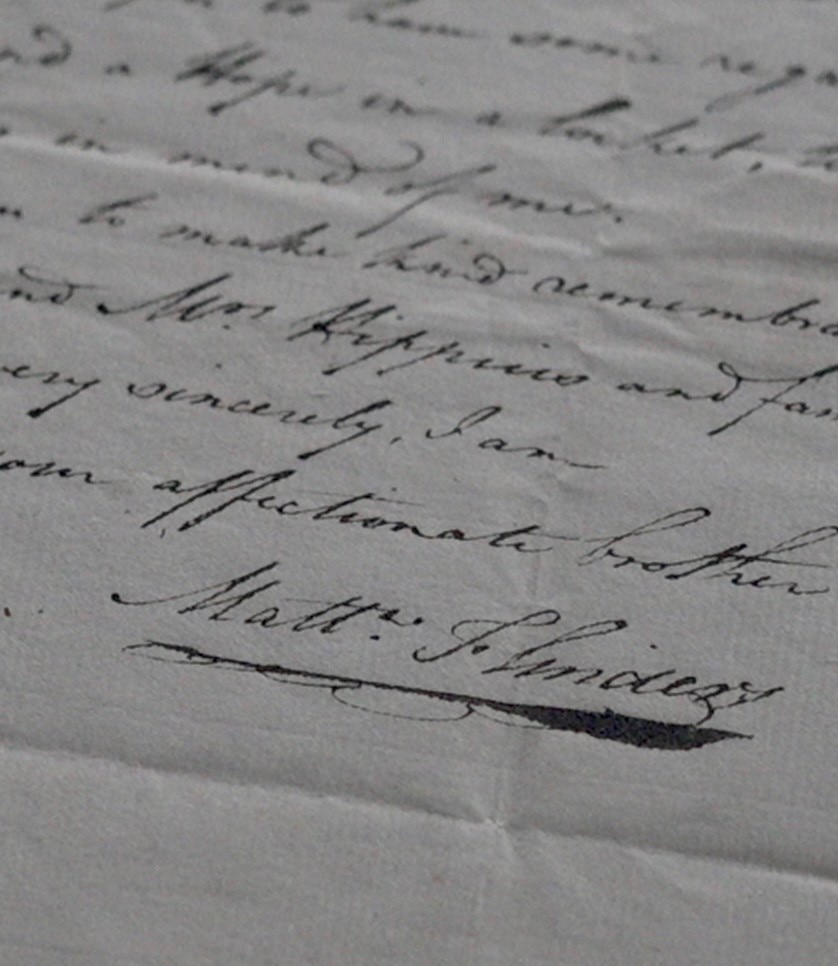 to have some rega
nd a Hope in a locket, t
in mind of me.
to make kind remembra
nd Mrs Kippins and fam
ery sincerely, I am
your affectionate brother
Mattw. Flinders